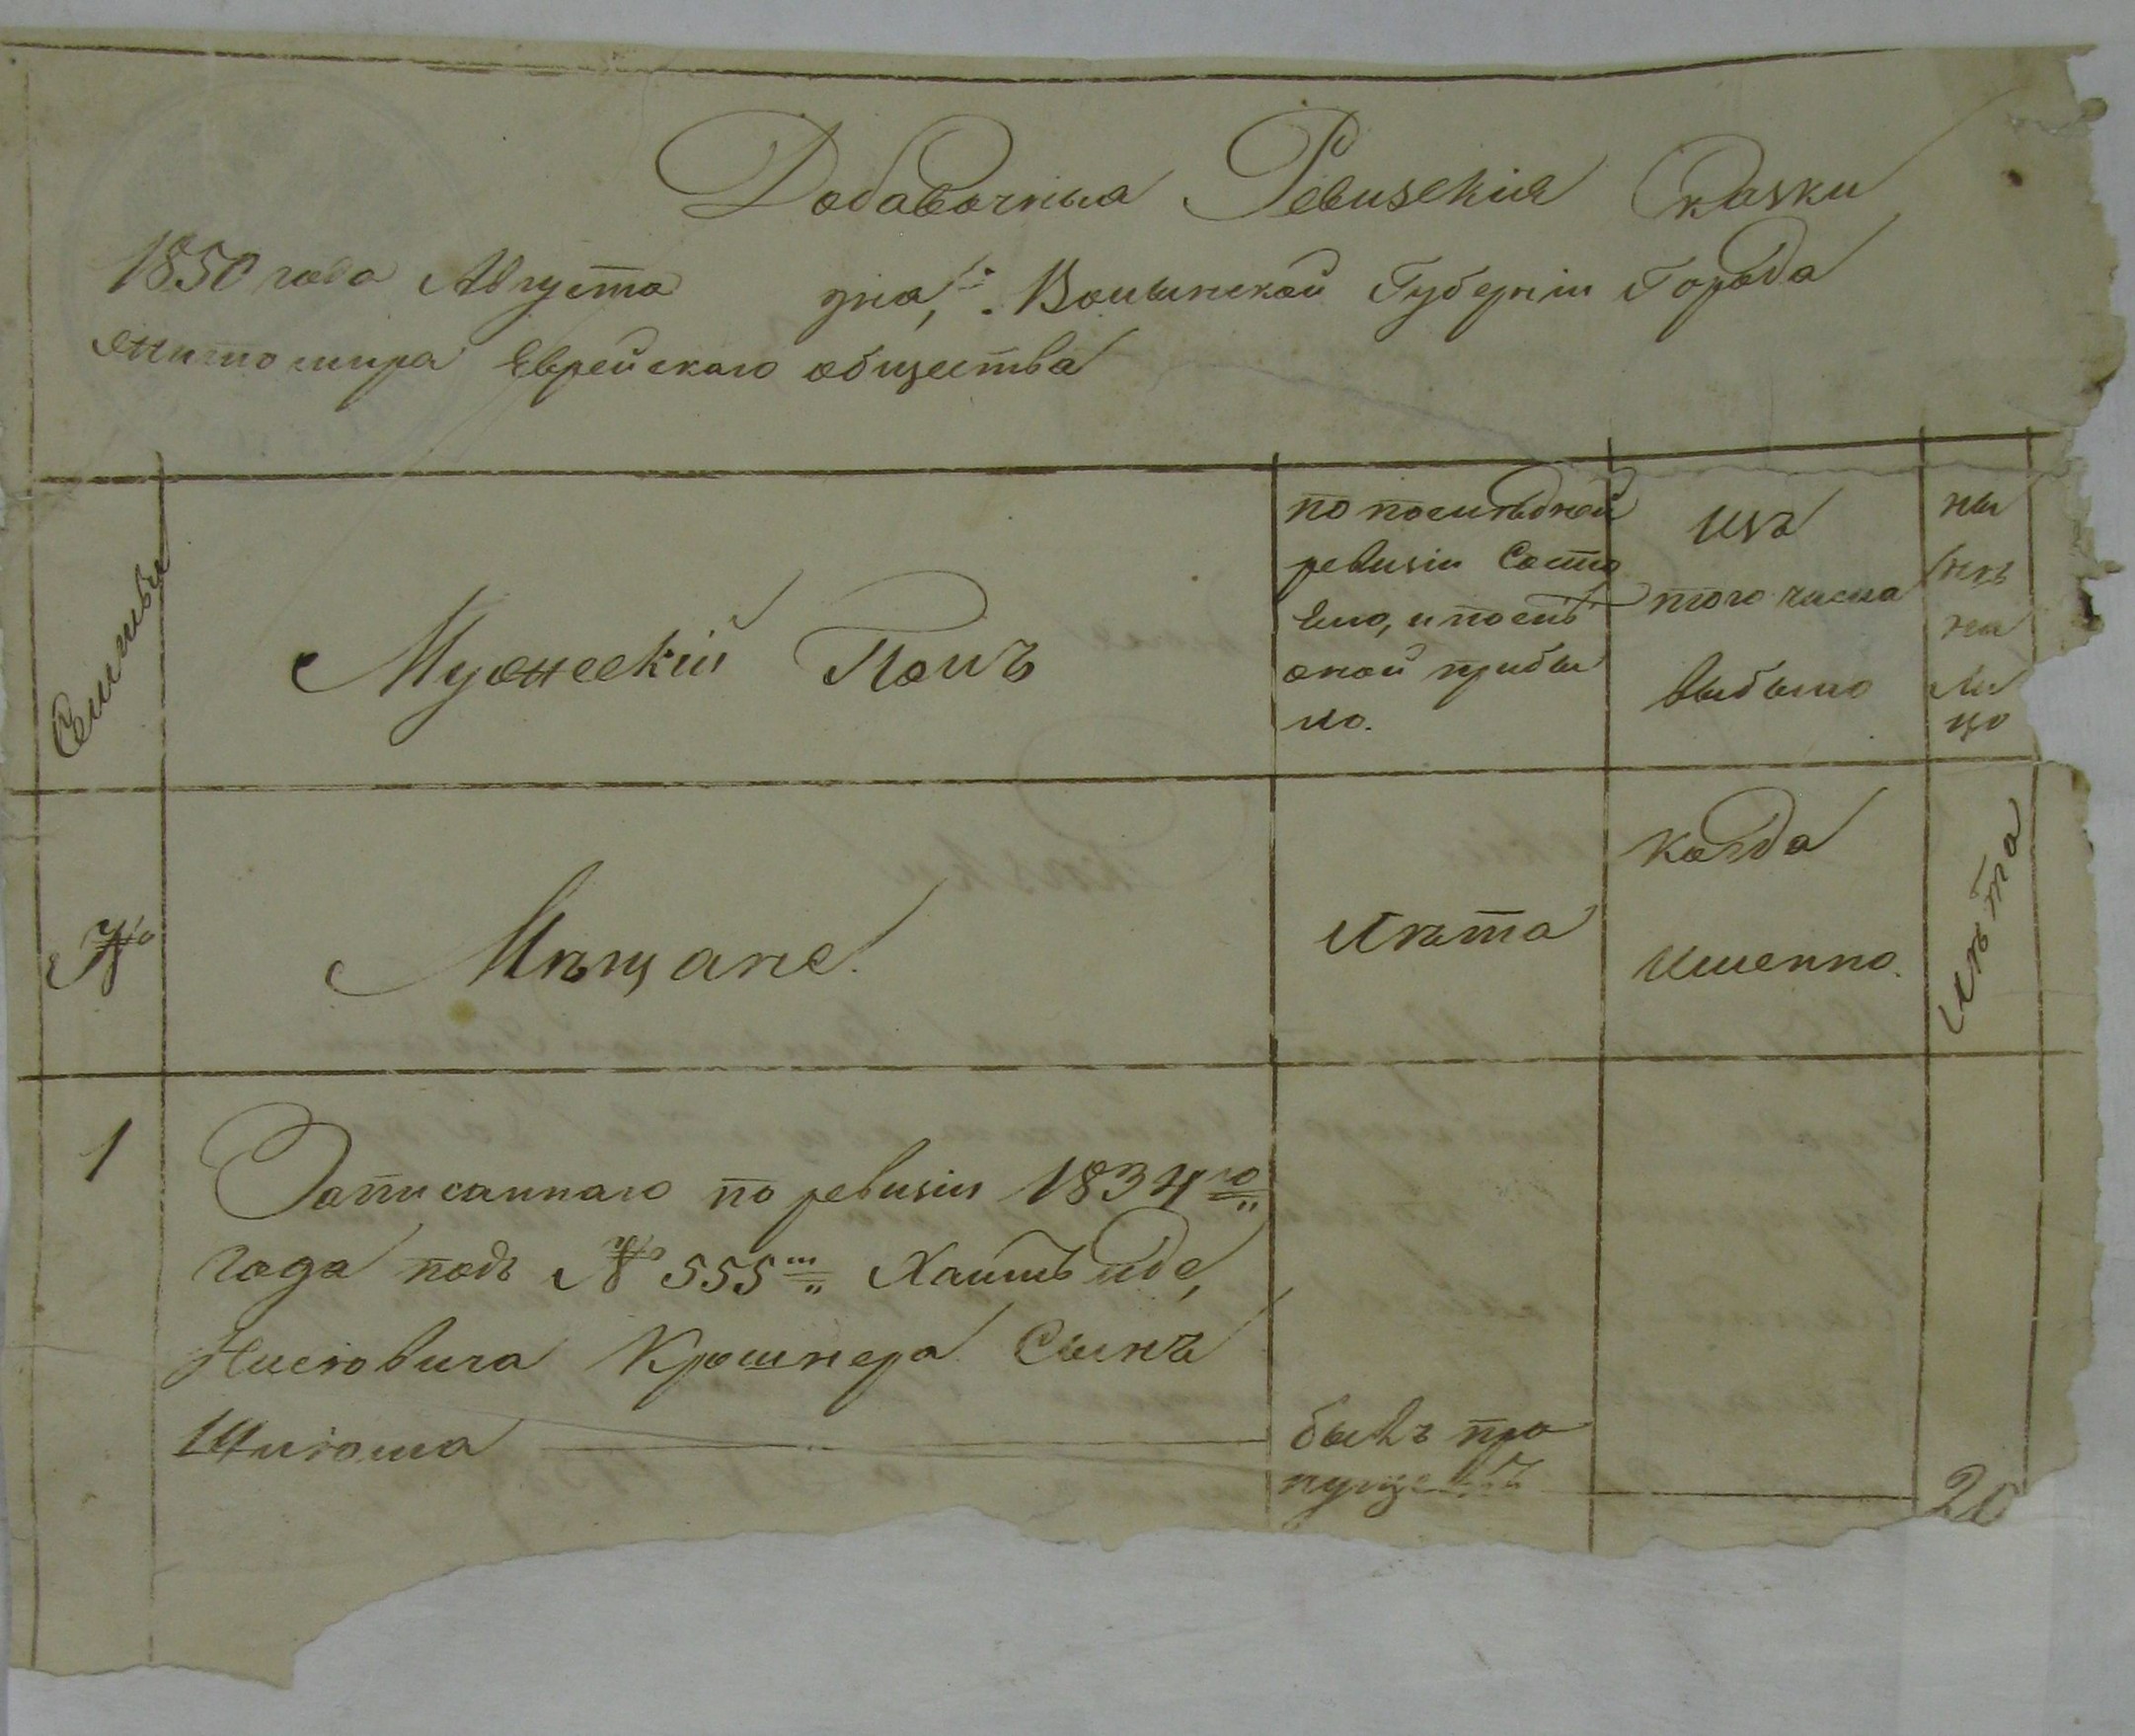 Добавочныя Ревизскія Сказки
1850 года Августа дня, Волынской Губерніи Города
Житомира Еврейскаго общества
Семьи
Мужескій Полъ
по послѣдней
ревизіи Состо
яло, и послѣ
оной прибы
ло.
Изъ
того числа
выбыло
ны
нѣ
на
ли
цо
№
Мѣщане.
Лѣта
когда
Именно.
Лѣта
1
Записаннаго по ревизіи 1834го
года подъ № 555м
Крошнера Сынъ
былъ про
пущенъ
20